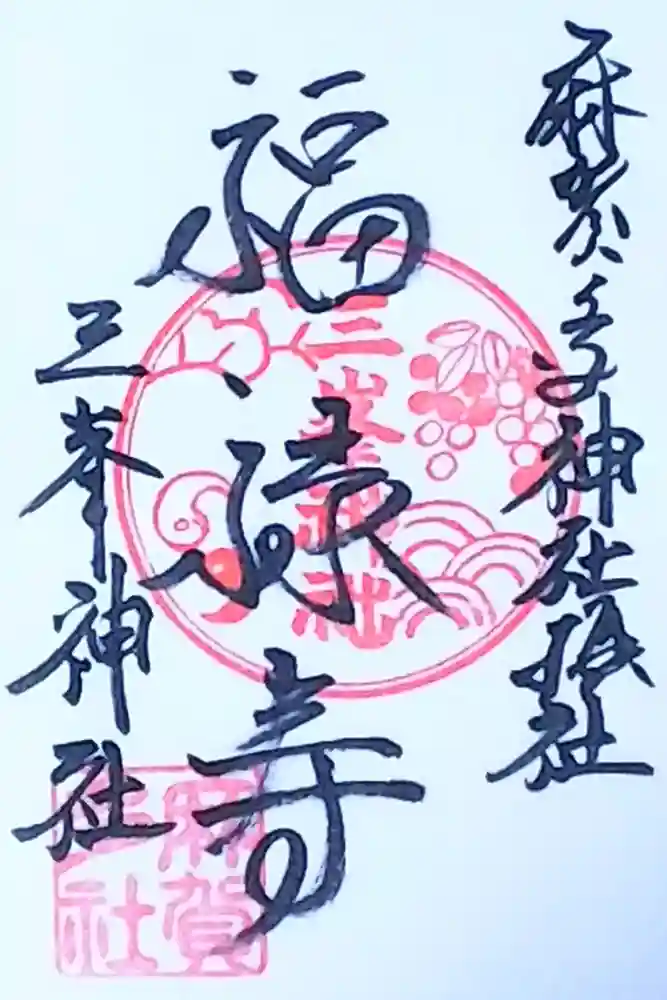 麻賀多神社摂社
福禄寿
三峯神社
三峯神社
麻賀
社